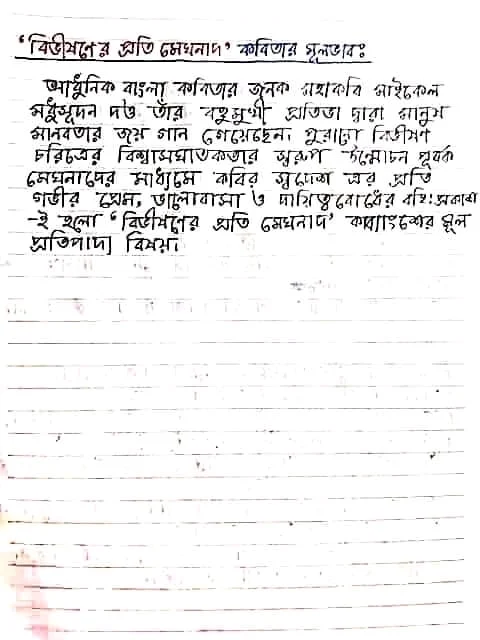 ‘বিভীষণের প্রতি মেঘনাদ’ কবিতার মূলভাবঃ
আধুনিক বাংলা কবিতার জনক মহাকবি মাইকেল
মধুসূদন দত্ত তাঁর বহুমুখী প্রতিভা দ্বারা মানুষ
মানবতার জয় গান গেয়েছেন। পুরানো বিভীষণ
চরিত্রের বিশ্বাসঘাতকতার স্বরূপ উন্মোচন পূর্বক
মেঘনাদের মাধ্যমে কবির স্বদেশ এর প্রতি
গভীর প্রেম, ভালোবাসা ও দায়িত্ববোধের বহিঃপ্রকাশ
-ই হলো ‘বিভীষণের প্রতি মেঘনাদ’ কাব্যাংশের মূল
প্রতিপাদ্য বিষয়।